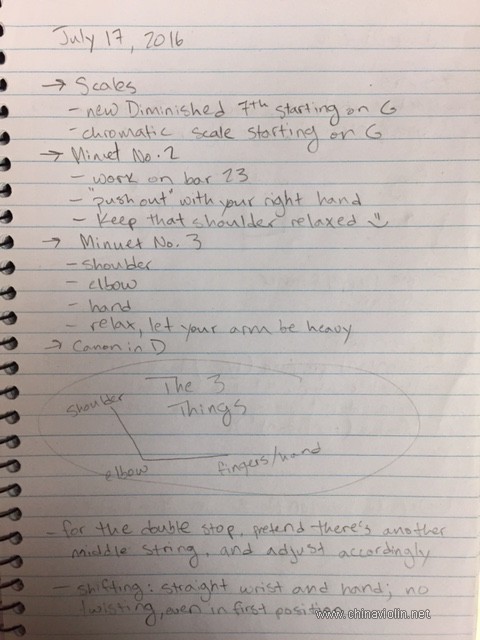 July 17, 2016
→ Scales
- new Diminished 7th starting on G
- chromatic scale starting on G
→ Minuet No. 2
- work on bar 23
- "push out" with your right hand
- Keep that shoulder relaxed
→ Minuet No. 3
- shoulder
- elbow
- hand
- relax, let your arm be heavy
→ Canon in D
The 3
Things
shoulder
elbow
fingers/hand
- for the double stop, pretend there's another
middle string, and adjust accordingly
- shifting: straight wrist and hand; no
twisting, even in first position
www.chinaviolin.net